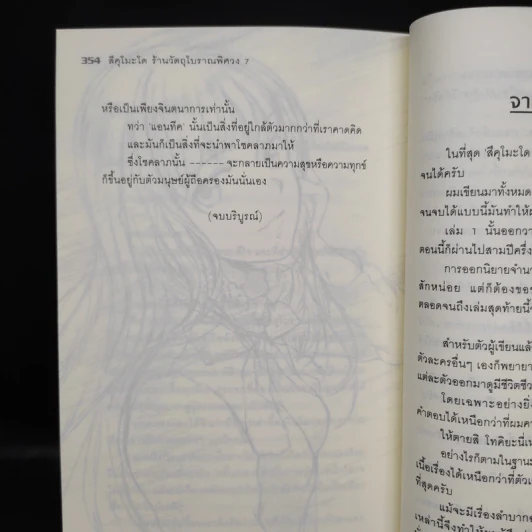 354 สึคุโมะโด ร้านวัตถุโบราณพิศวง 7
หรือเป็นเพียงจินตนาการเท่านั้น
ทว่า 'แอนทีค' นั้นเป็นสิ่งที่อยู่ใกล้ตัวมากกว่าที่เราคาดคิด
และมันก็เป็นสิ่งที่จะนำพาโชคลาภมาให้
ซึ่งโชคลาภนั้น ------ จะกลายเป็นความสุขหรือความทุกข์
ก็ขึ้นอยู่กับตัวมนุษย์ผู้ถือครองมันนั่นเอง
(จบบริบูรณ์)
จา
ในที่สุด 'สึคุโมะโด
จนได้ครับ
ผมเขียนมาทั้งหมด
จนจบได้แบบนี้มันทำให้
เล่ม 1 นั้นออกวา
ตอนนี้ก็ผ่านไปสามปีครึ่ง
การออกนิยายจำนว
สักหน่อย แต่ก็ต้องขอข
ตลอดจนถึงเล่มสุดท้ายนี้
สำหรับตัวผู้เขียนแล้
ตัวละครอื่นๆ เองก็พยายา
แต่ละตัวออกมาดูมีชีวิตชีว
โดยเฉพาะอย่างยิ่ง
คำตอบได้เหนือกว่าที่ผมคา
ให้ตายสิ โทคิยะนี่เห
อย่างไรก็ตามในฐานะ
เนื้อเรื่องได้เหนือกว่าที่ตัวเ
ที่สุดครับ
แม้จะมีเรื่องลำบาก